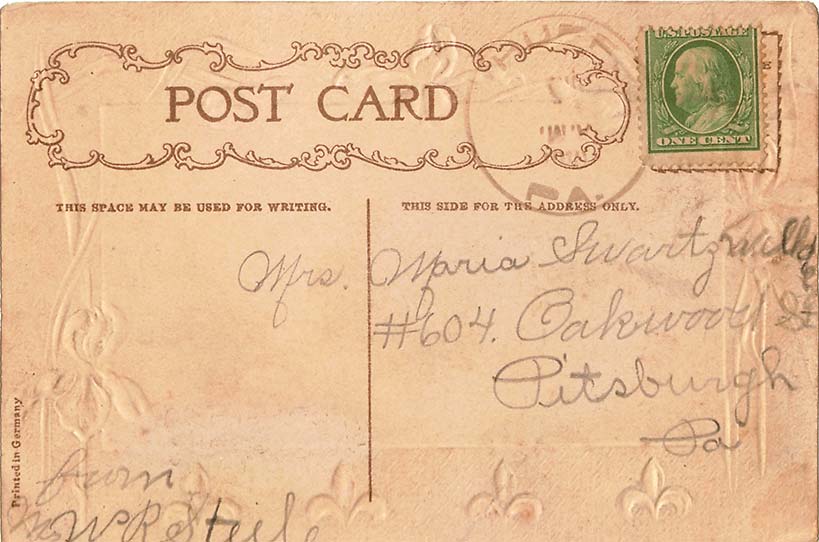 POST CARD
U.S. POSTAGE
ONE CENT
PA.
THIS SPACE MAY BE USED FOR WRITING.
THIS SIDE FOR THE ADDRESS ONLY.
Mrs. Maria Swartzwelder
#604. Oakwood St
Pitsburgh
Pa
Printed in Germany
from
W R Steele